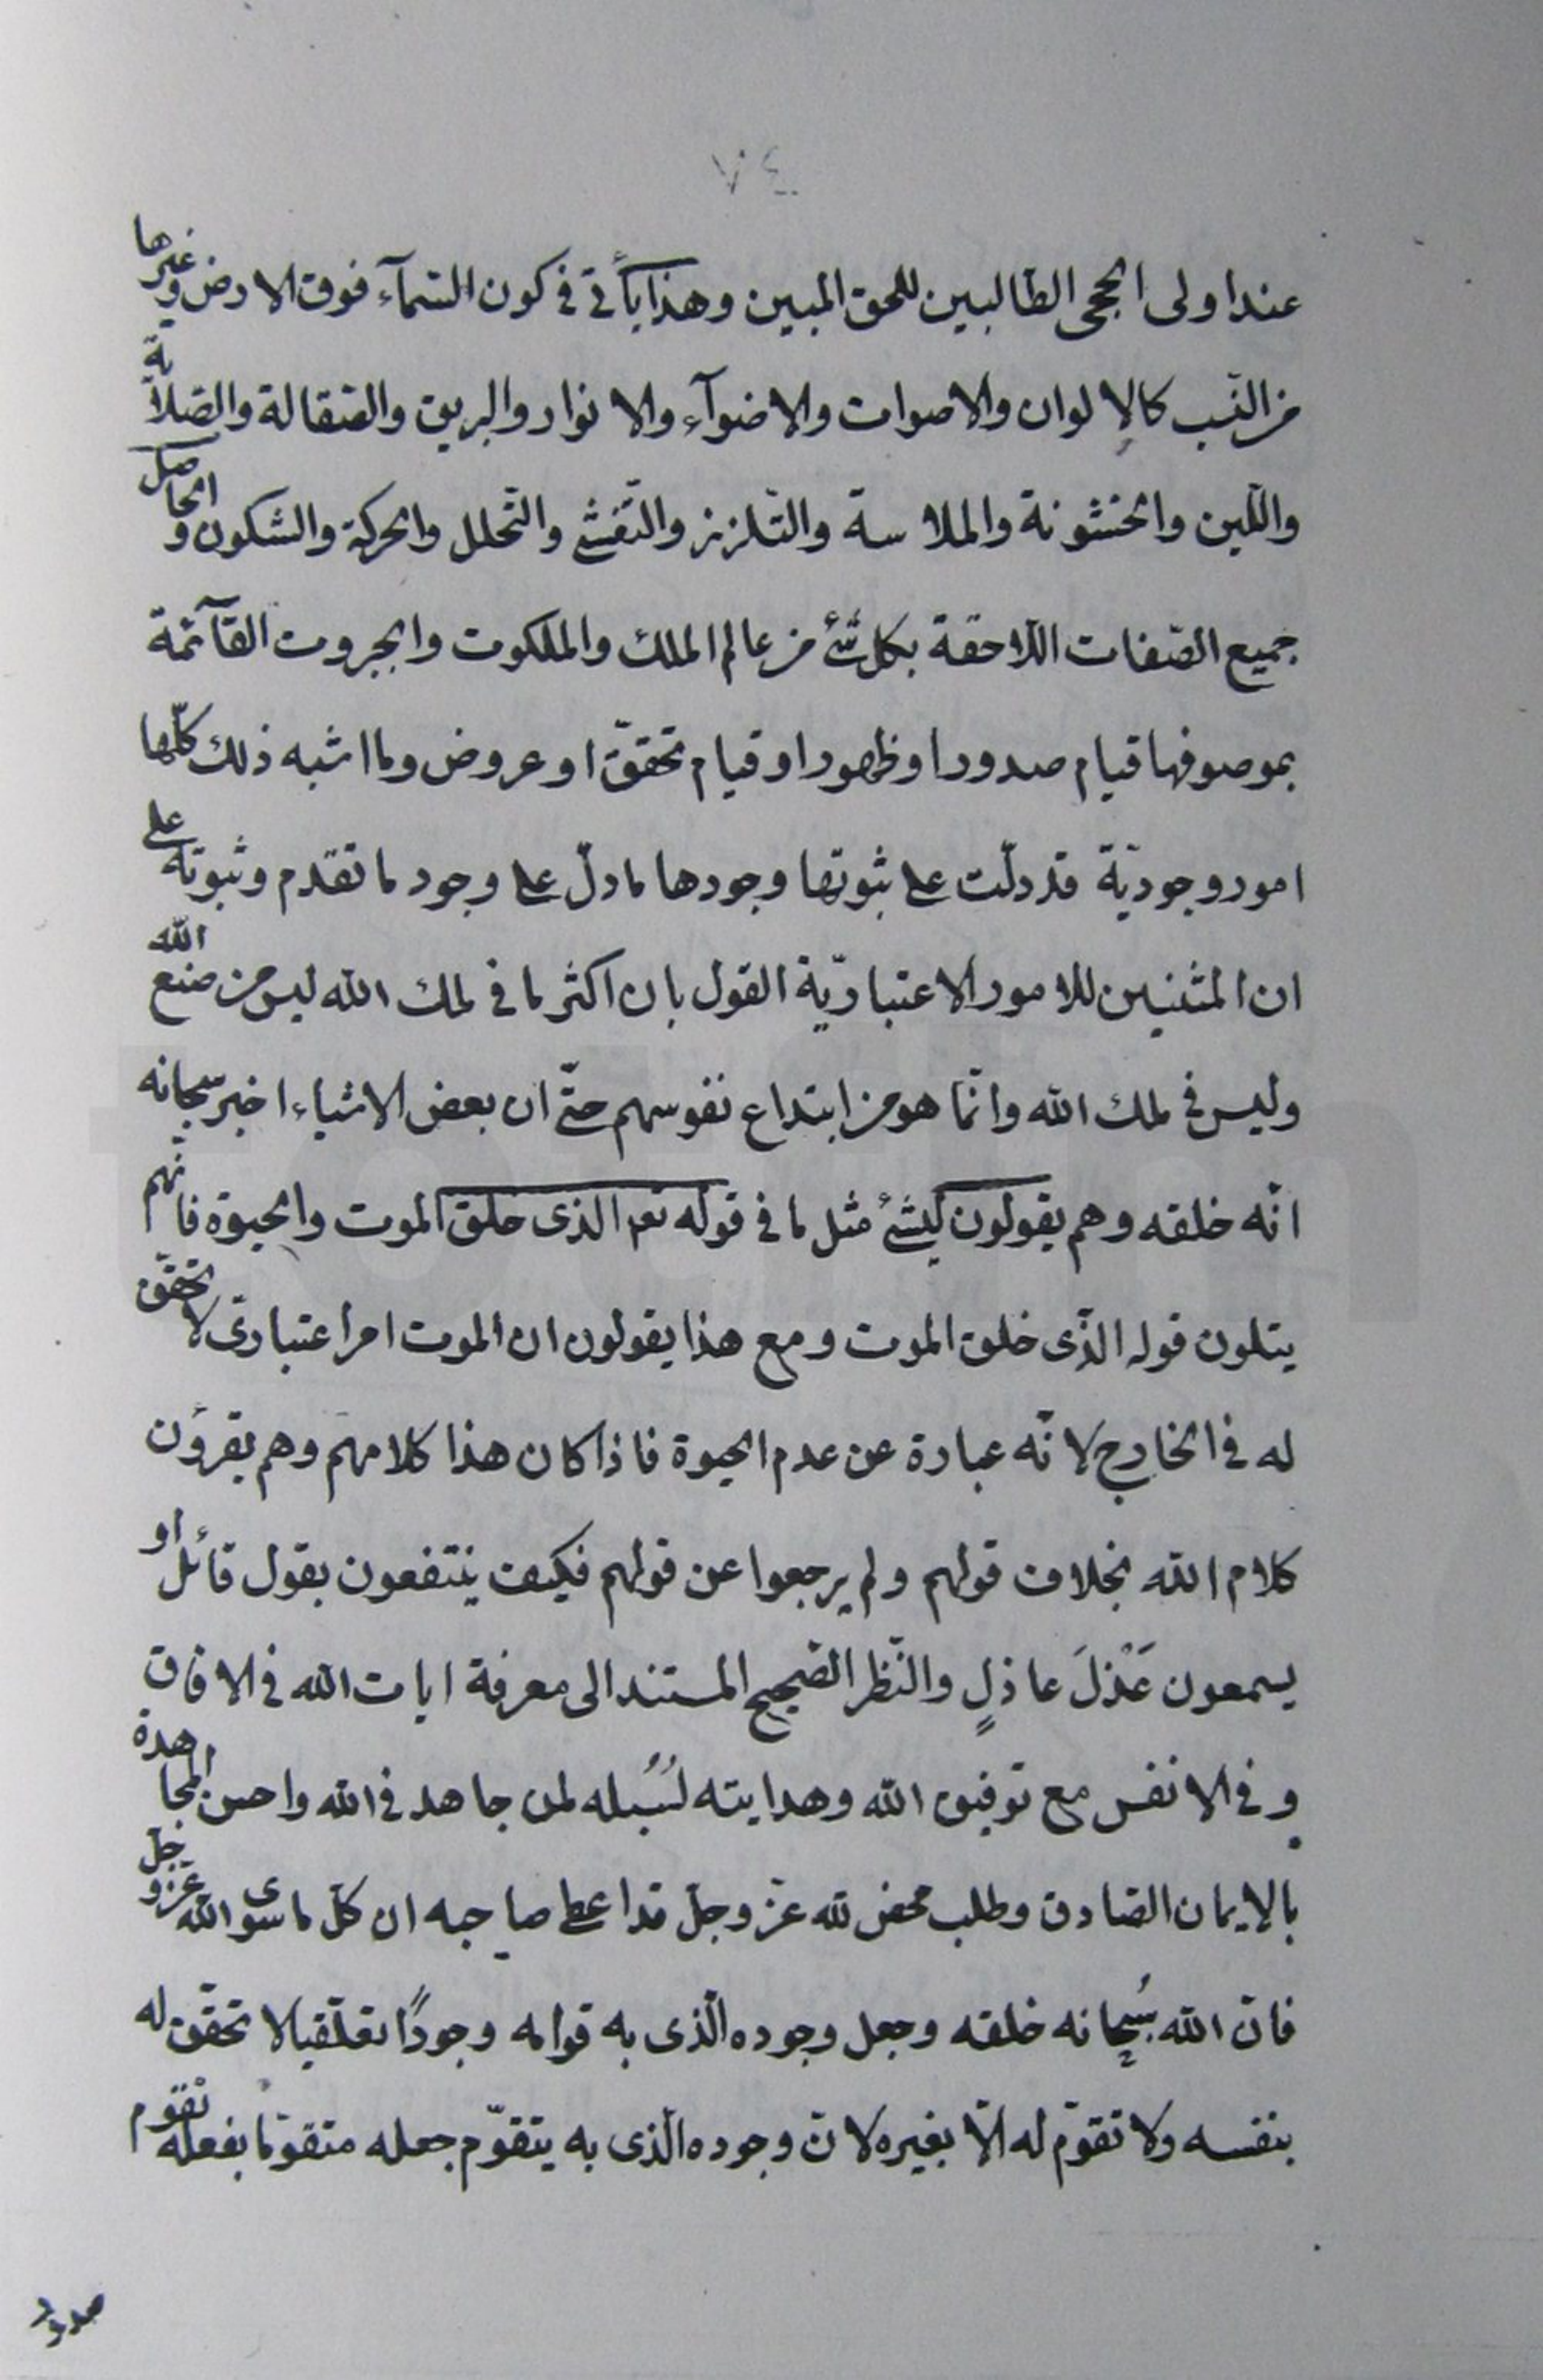 ٧٤
عند اولى الحجى الطّالبين للحق المبين وهذا يأتى فى كون السّمآء فوق الارض وغيرها
من النّسب كالالوان والاصوات والاضوآء والانوار والبريق والصّقالة والصّلابة
واللّين والخشونة والملاسة والتّلزز والتّفشّى والتّحلل والحركة والسّكون والحاصل
جميع الصّفات اللّاحقة بكل شئ من عالم الملك والملكوت والجبروت القآئمة
بموصوفها قيام صدور او ظهور او قيام تحقّق او عروض وما اشبه ذلك كلّها
امور وجوديّة قد دلّت على ثبوتها وجودها ما دلّ على وجود ما تقدم وثبوته على
ان المثبتين للامور الاعتباريّة القول بان اكثر ما فى ملك الله ليس من صنع الله
وليس فى ملك الله وانّما هو من ابتداع نفوسهم حتّى ان بعض الاشياء اخبر سبحانه
انّه خلقه وهم يقولون ليس بشئ مثل ما فى قوله تعم الذى خلق الموت والحيوة فانّهم
يتلون قوله الّذى خلق الموت ومع هذا يقولون ان الموت امر اعتبارىّ لا تحقّق
له فى الخارج لانّه عبارة عن عدم الحيوة فاذا كان هذا كلامهم وهم يقرؤن
كلام الله بخلاف قولهم ولم يرجعوا عن قولهم فكيف ينتفعون بقول قائل او
يسمعون عَذْلَ عاذلٍ والنّظر الصّحيح المستند الى معرفة ايات الله فى الافاق
وفى الانفس مع توفيق الله وهدايته لسُبُله لمن جاهد فى الله واحسن المجاهدة
بالايمان الصّادق وطلب محض لله عزّ وجلّ قد اعطى صاحبه ان كلّ ما سوى الله عزّ وجلّ
فانّ الله سُبحانه خلقه وجعل وجوده الّذى به قوامه وجودًا تعلّقيا لا تحقّق له
بنفسه ولا تقوّم له الّا بغيره لانّ وجوده الّذى به يتقوّم جعله متقوّما بفعله تقوم
صدور